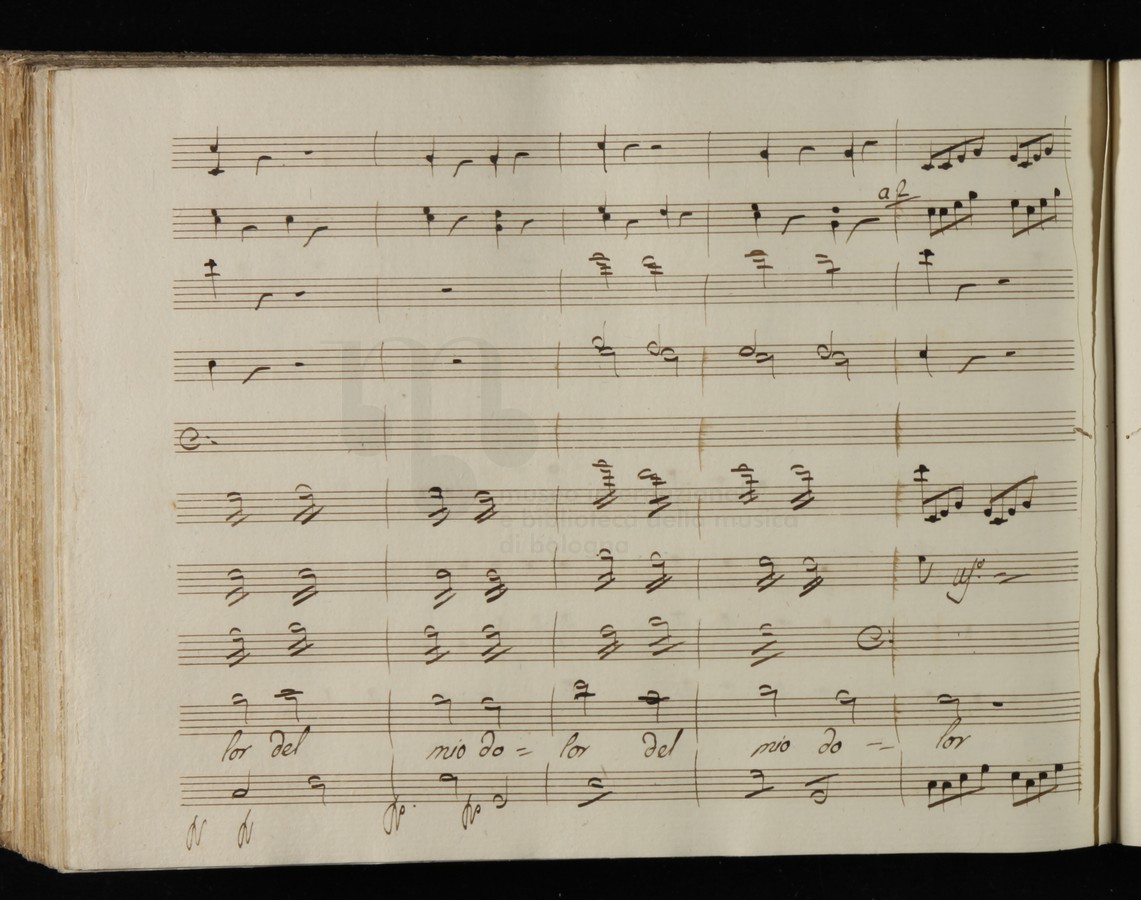 a 2
museo internazionale
e biblioteca della musica
di bologna
lor del mio do = lor del mio do = lor